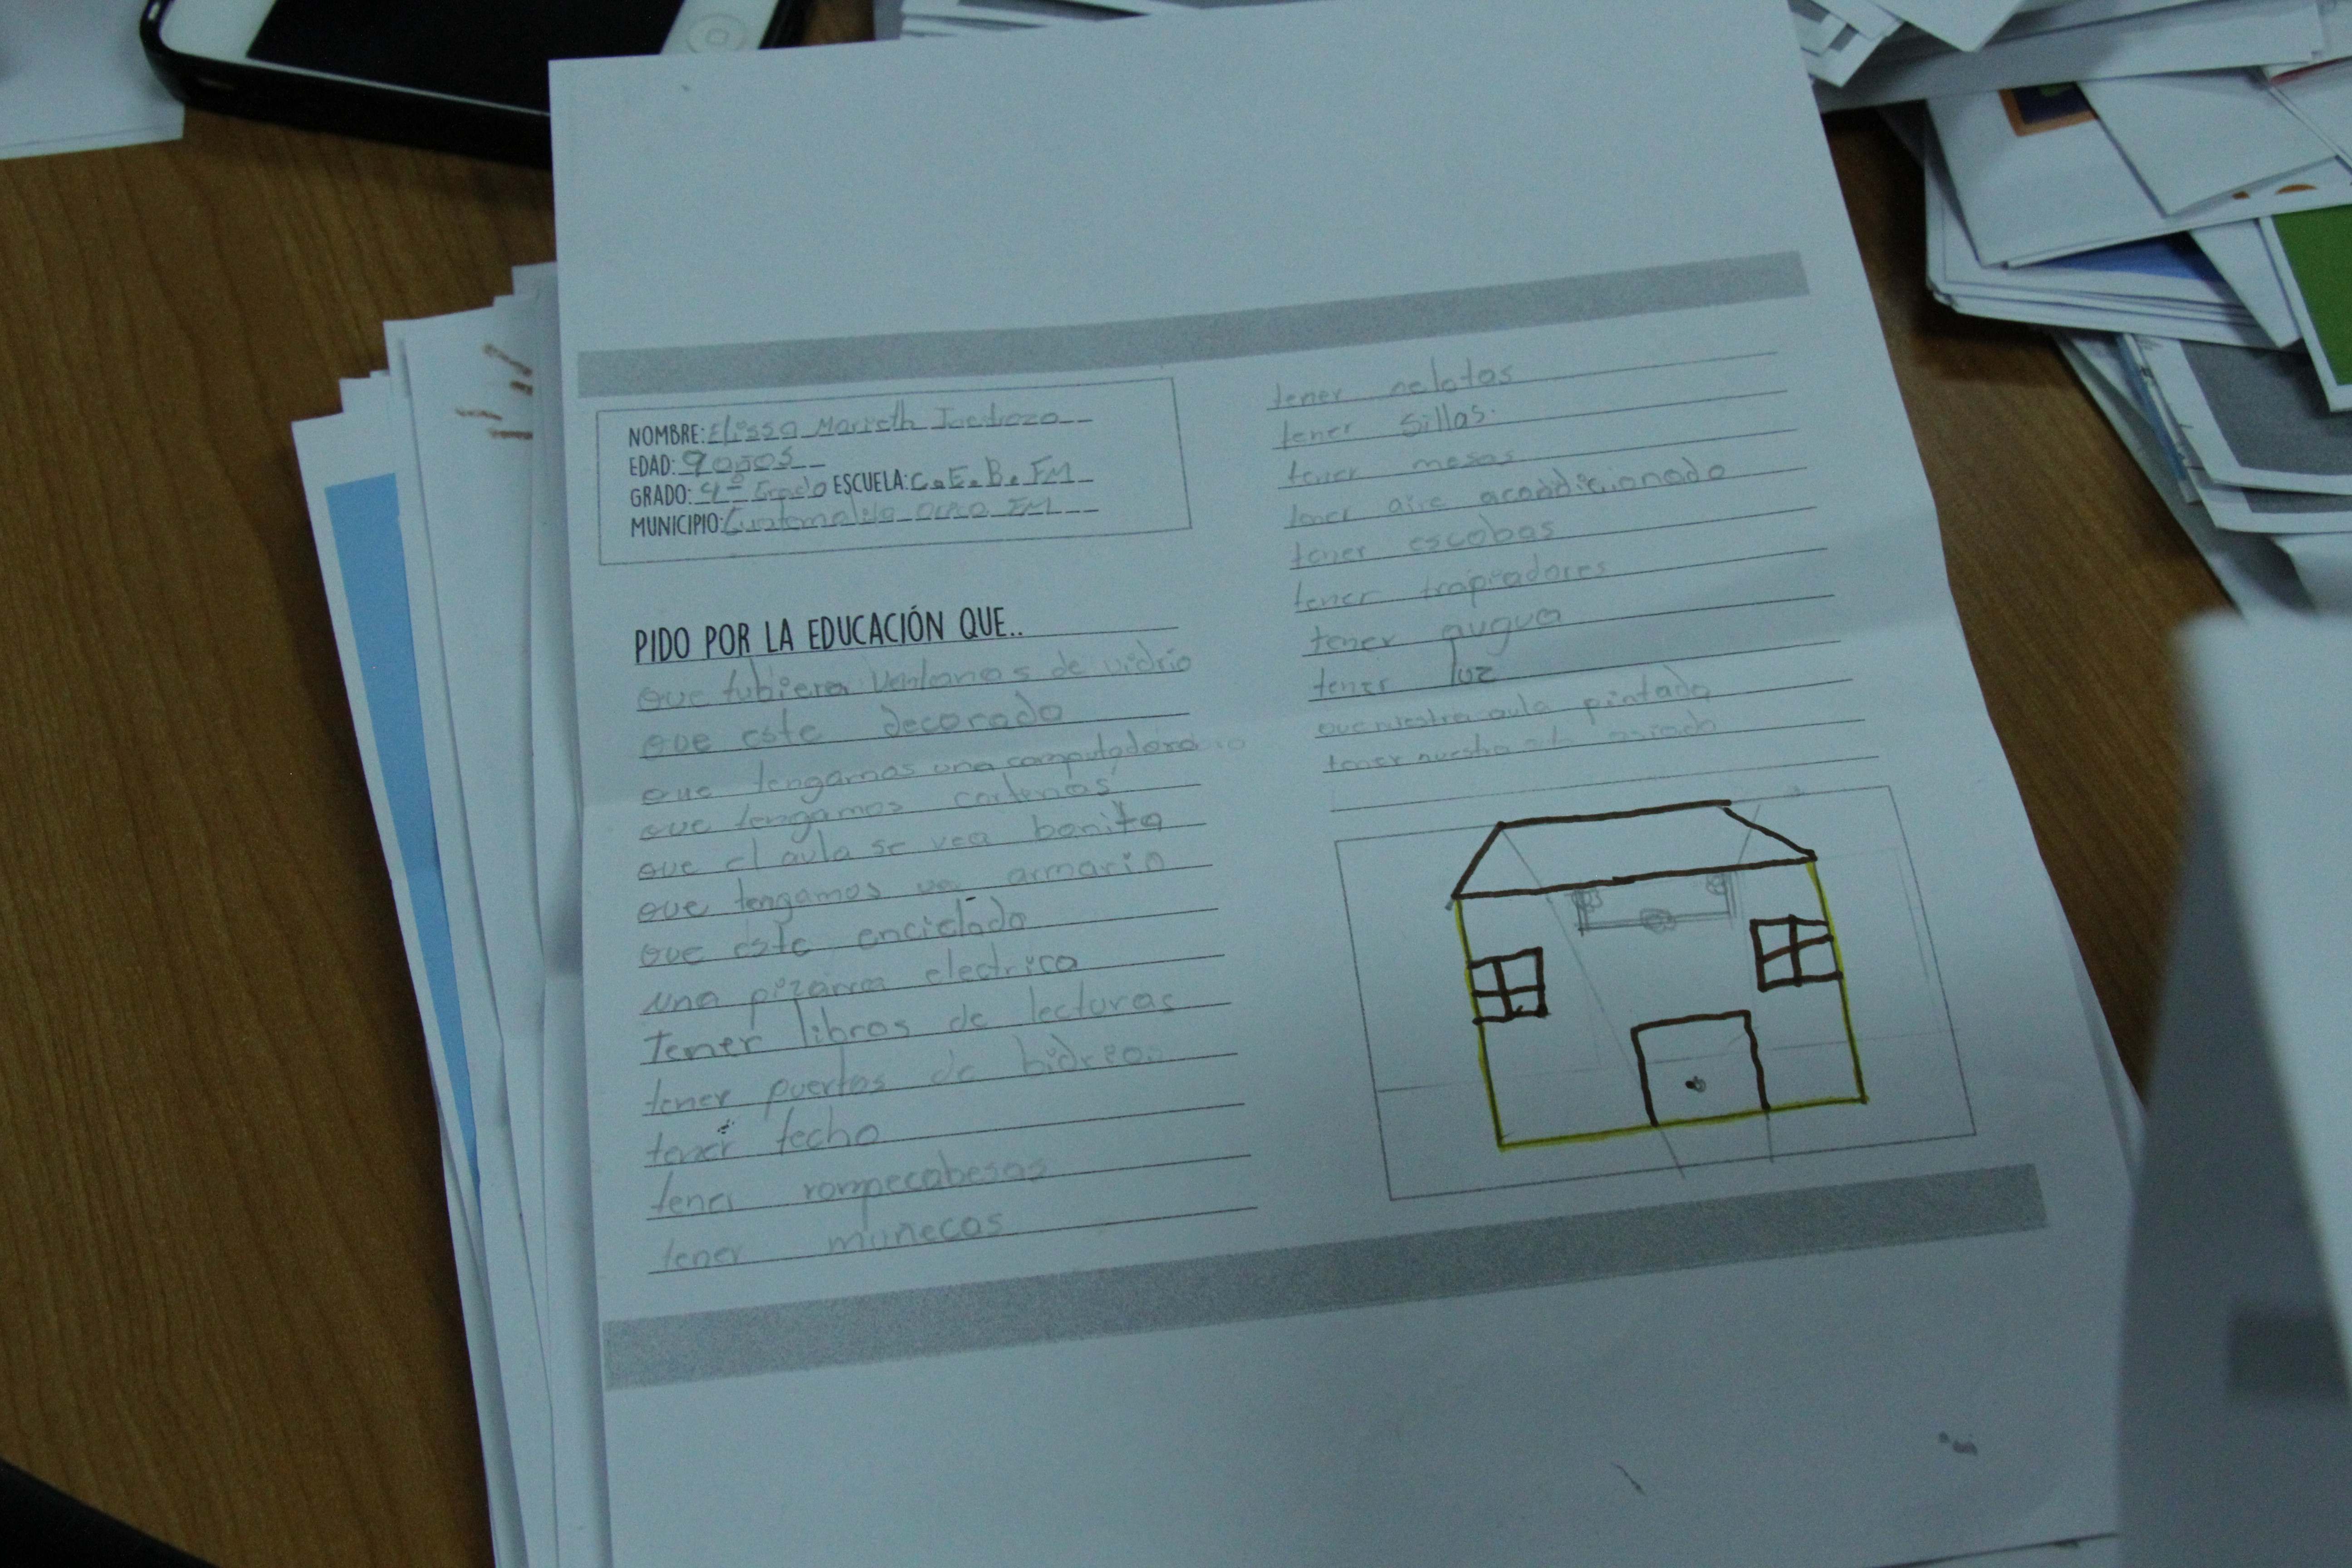 NOMBRE: Elissa Marieth
EDAD: 9 años
GRADO: 4º Grado ESCUELA: C.E.B. FM
MUNICIPIO: FM
PIDO POR LA EDUCACIÓN QUE..
que tubiera ventanas de vidrio
que este decorado
que tengamos una computadora
que tengamos cortenas
que el aula se vea bonita
que tengamos un armario
que este encielado
una pizarra electrica
Tener libros de lecturas
tener puertas de bidreo
tener techo
tener rompecabesas
tener muñecas
tener pelotas
tener sillas.
tener mesas
tener aire acondicionado
tener escobas
tener trapiadores
tener augua
tener luz
que nuestra aula pintada
tener nuestra